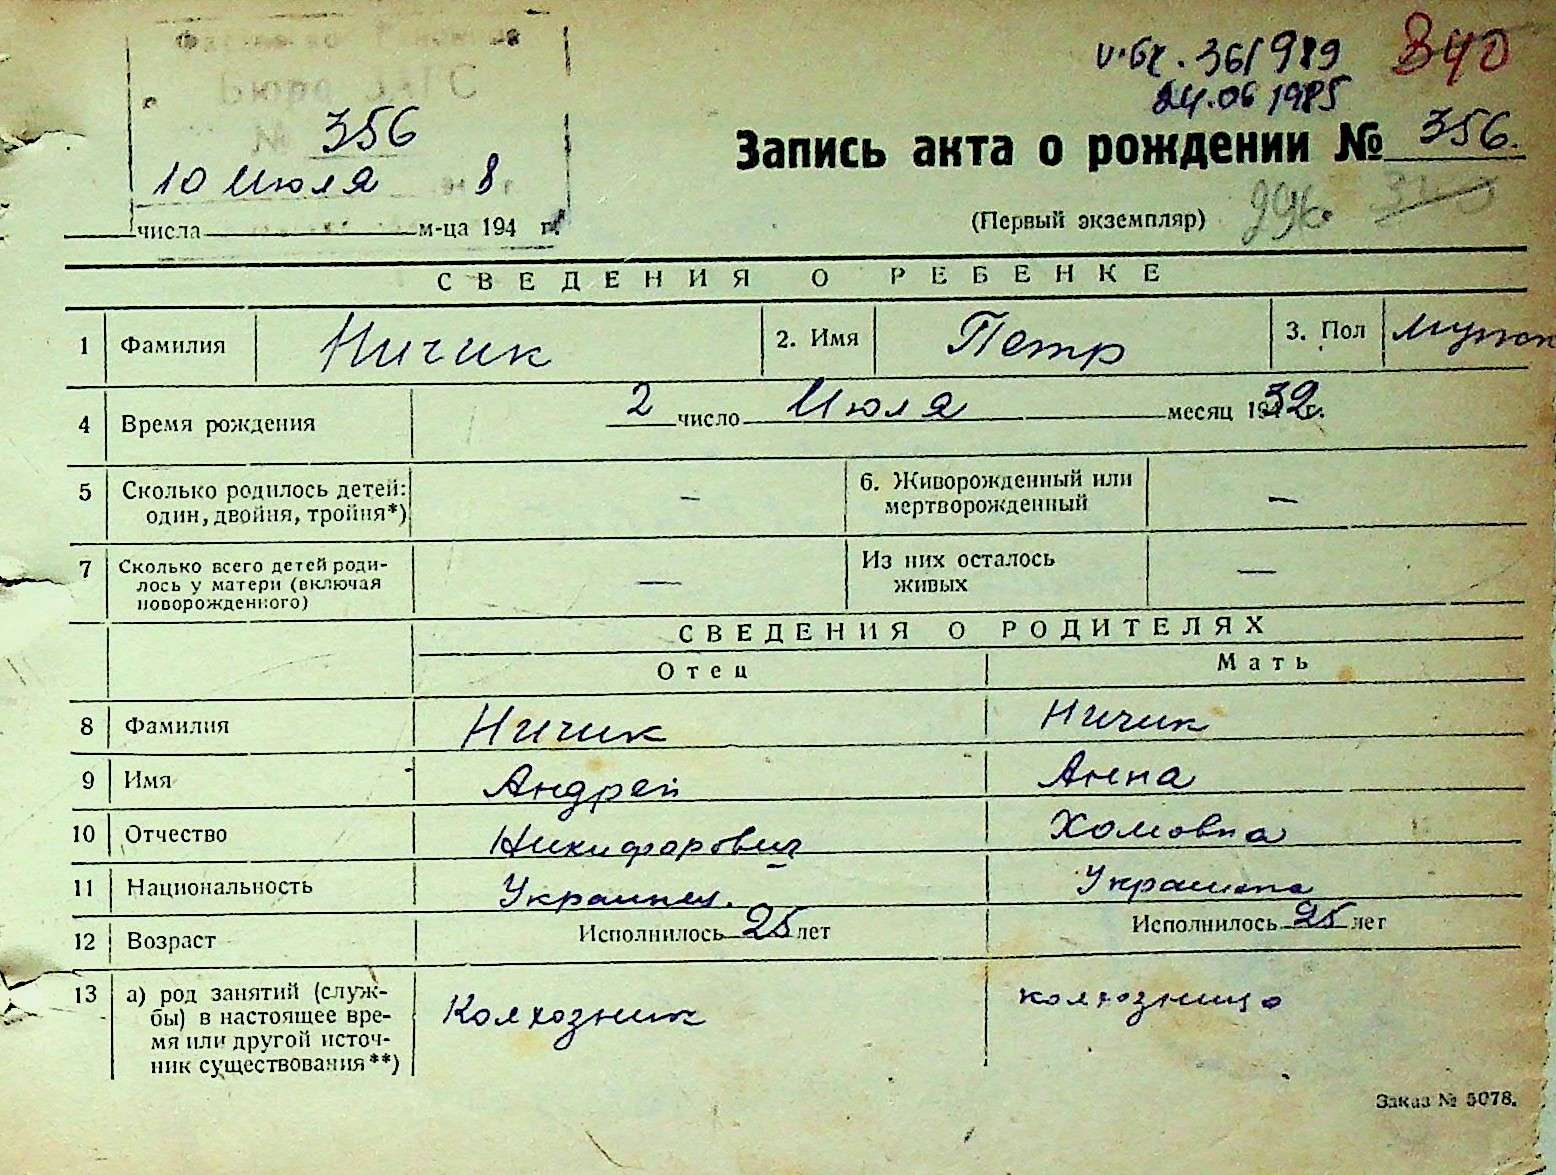 Бюро ЗАГС
№ 356
10 Июля 8
числа м-ца 194 г.
36/989
340
24.06 1985
Запись акта о рождении № 356.
(Первый экземпляр)
СВЕДЕНИЯ О РЕБЕНКЕ
1 Фамилия Ничик 2. Имя Петр 3. Пол мужск
4 Время рождения 2 число Июля месяц 1932 г.
5 Сколько родилось детей: — 6. Живорожденный или —
один, двойня, тройня*) мертворожденный
7 Сколько всего детей роди- — Из них осталось —
лось у матери (включая живых
новорожденного)
СВЕДЕНИЯ О РОДИТЕЛЯХ
Отец Мать
8 Фамилия Ничик Ничик
9 Имя Андрей Анна
10 Отчество Никифорович Хомовна
11 Национальность Украинец. Украинка
12 Возраст Исполнилось 25 лет Исполнилось 25 лет
13 а) род занятий (служ- Колхозник колхозница
бы) в настоящее вре-
мя или другой источ-
ник существования**)
Заказ № 5078.